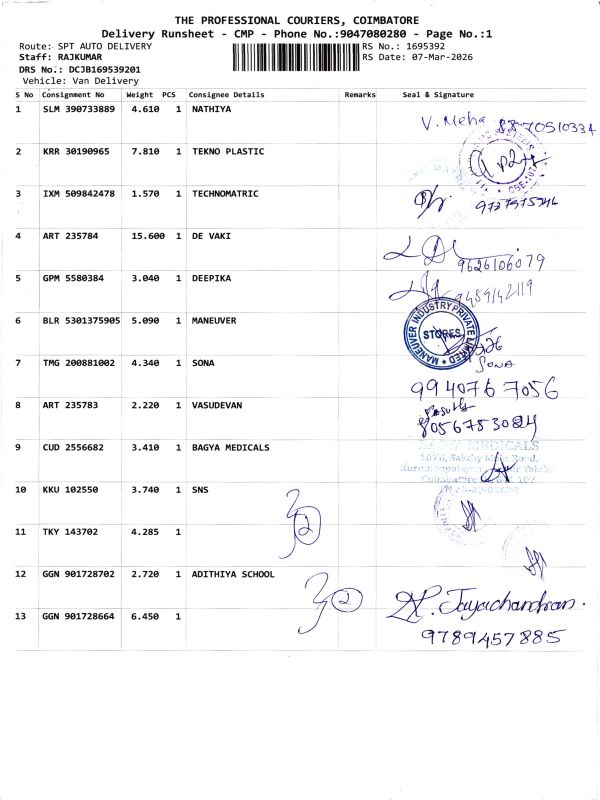 THE PROFESSIONAL COURIERS, COIMBATORE
Delivery Runsheet - CMP - Phone No.:9047080280 - Page No.:1
Route: SPT AUTO DELIVERY RS No.: 1695392
Staff: RAJKUMAR RS Date: 07-Mar-2026
DRS No.: DCJB169539201
Vehicle: Van Delivery
S No Consignment No Weight PCS Consignee Details Remarks Seal & Signature
1 SLM 390733889 4.610 1 NATHIYA
V. Meha 8870510334
2 KRR 30190965 7.810 1 TEKNO PLASTIC
3 IXM 509842478 1.570 1 TECHNOMATRIC
4 ART 235784 15.600 1 DE VAKI
9626106079
5 GPM 5580384 3.040 1 DEEPIKA
9489142119
6 BLR 5301375905 5.090 1 MANEUVER
MANEUVER INDUSTRY PRIVATE LIMITED
STORES
7 TMG 200881002 4.340 1 SONA
SONA
9940767056
8 ART 235783 2.220 1 VASUDEVAN
8056753084
9 CUD 2556682 3.410 1 BAGYA MEDICALS
BAGYA MEDICALS
Main Road,
10 KKU 102550 3.740 1 SNS
2
11 TKY 143702 4.285 1
12 GGN 901728702 2.720 1 ADITHIYA SCHOOL
2
P. Jayachandran.
13 GGN 901728664 6.450 1
9789457885